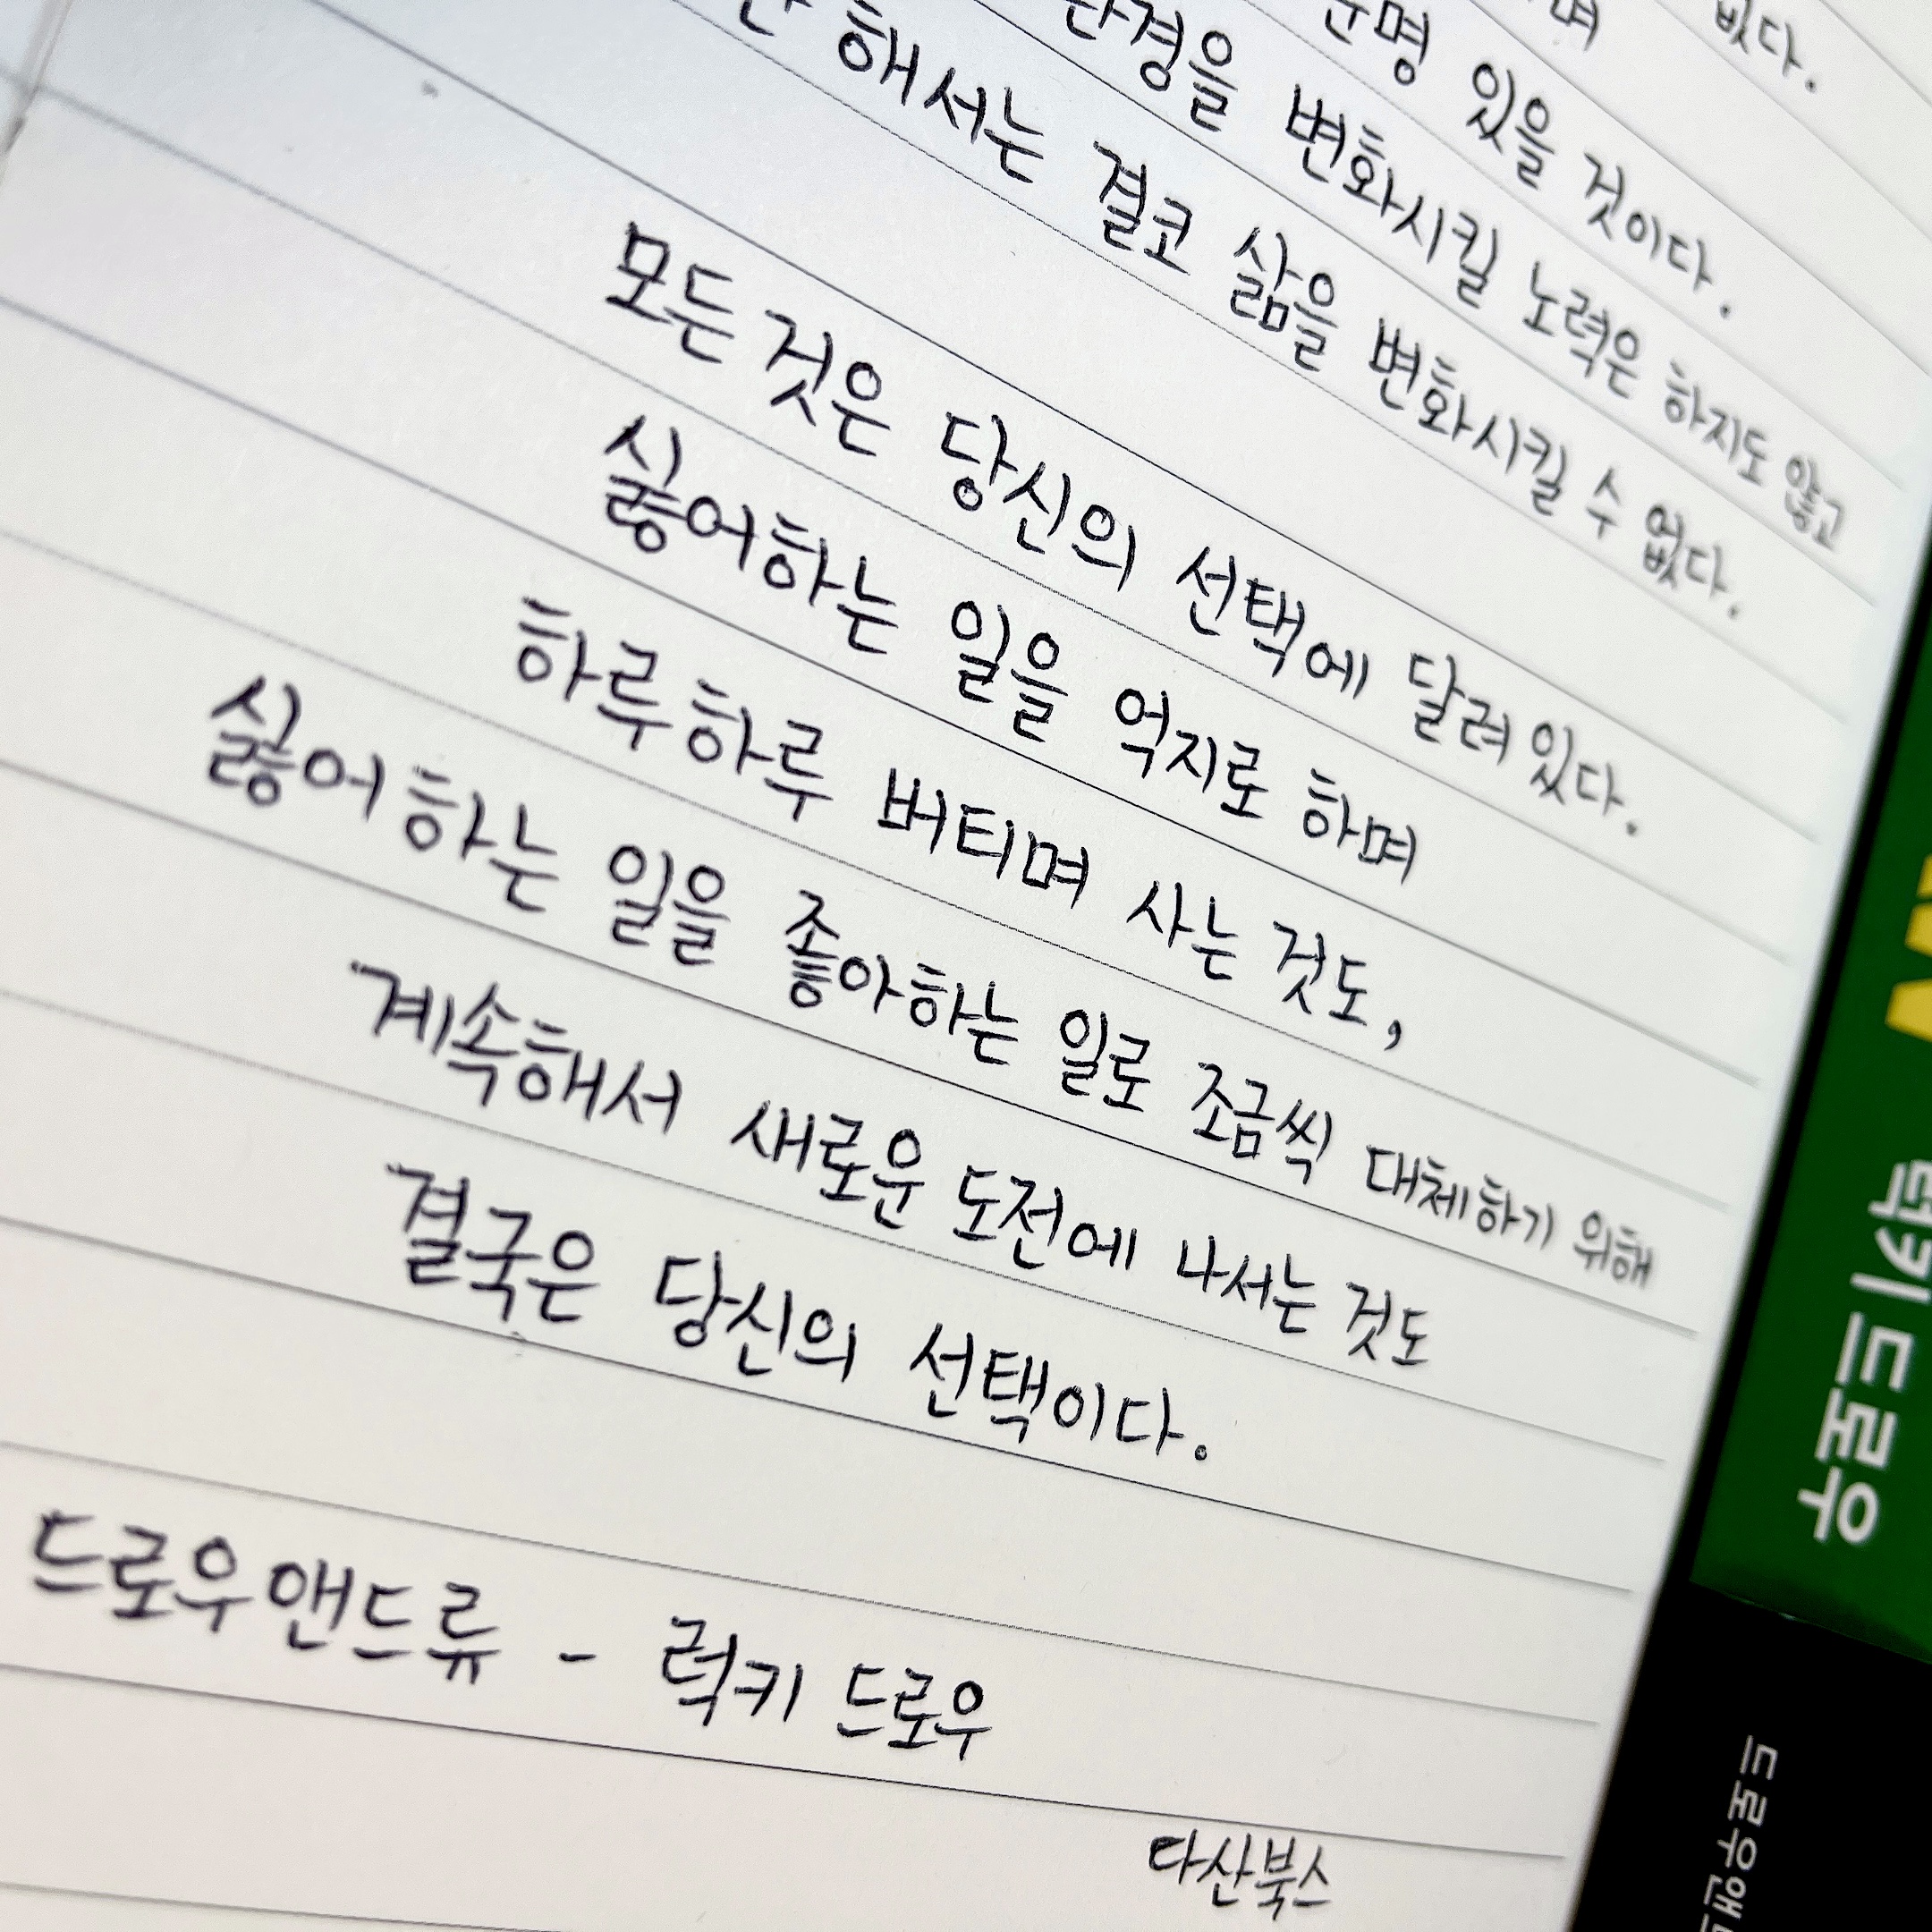 며 없다.
분명 있을 것이다.
환경을 변화시킬 노력은 하지도 않고
해서는 결코 삶을 변화시킬 수 없다.
모든 것은 당신의 선택에 달려 있다.
싫어하는 일을 억지로 하며
하루하루 버티며 사는 것도,
싫어하는 일을 좋아하는 일로 조금씩 대체하기 위해
계속해서 새로운 도전에 나서는 것도
결국은 당신의 선택이다.
드로우앤드류 - 럭키 드로우
다산북스
럭키 드로우
드로우앤